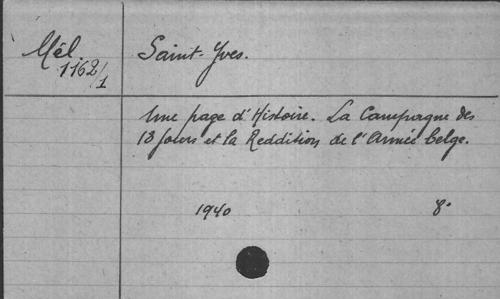 Mél.
1162/1
Saint-Yves.
Une page d'Histoire. La Campagne des
18 jours et la Reddition de l'Armée belge.
1940 8°